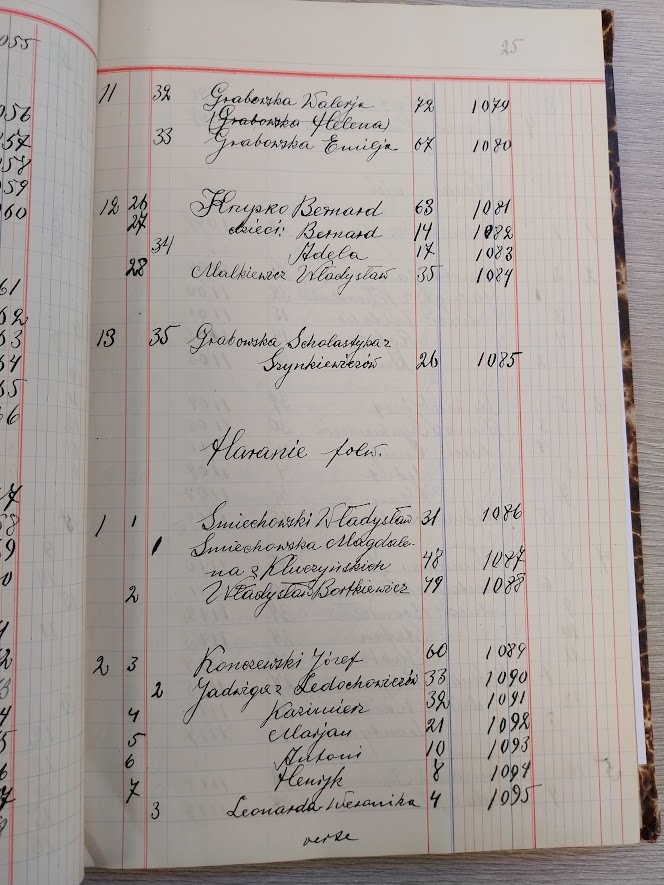 25
11 32 Grabowska Walerja 72 1079
(Grabowska Helena)
33 Grabowska Emilja 67 1080
12 26 Hrypko Bernard 63 1081
27 dzieci: Bernard 14 1082
34 Adela 17 1083
28 Malkiewicz Władysław 35 1084
13 35 Grabowska Scholastyka z
Szynkiewiczów 26 1085
Haranie folw.
1 1 Śmiechowski Władysław 31 1086
1 Śmiechowska Magdale-
na z Kluczyńskich 48 1087
2 Władysław Bortkiewicz 79 1088
2 3 Konczewski Józef 60 1089
2 Jadwiga z Ledochowiczów 33 1090
4 Kazimierz 32 1091
5 Marjan 21 1092
6 Antoni 10 1093
7 Henryk 8 1094
3 Leonarda Weronika 4 1095
verte